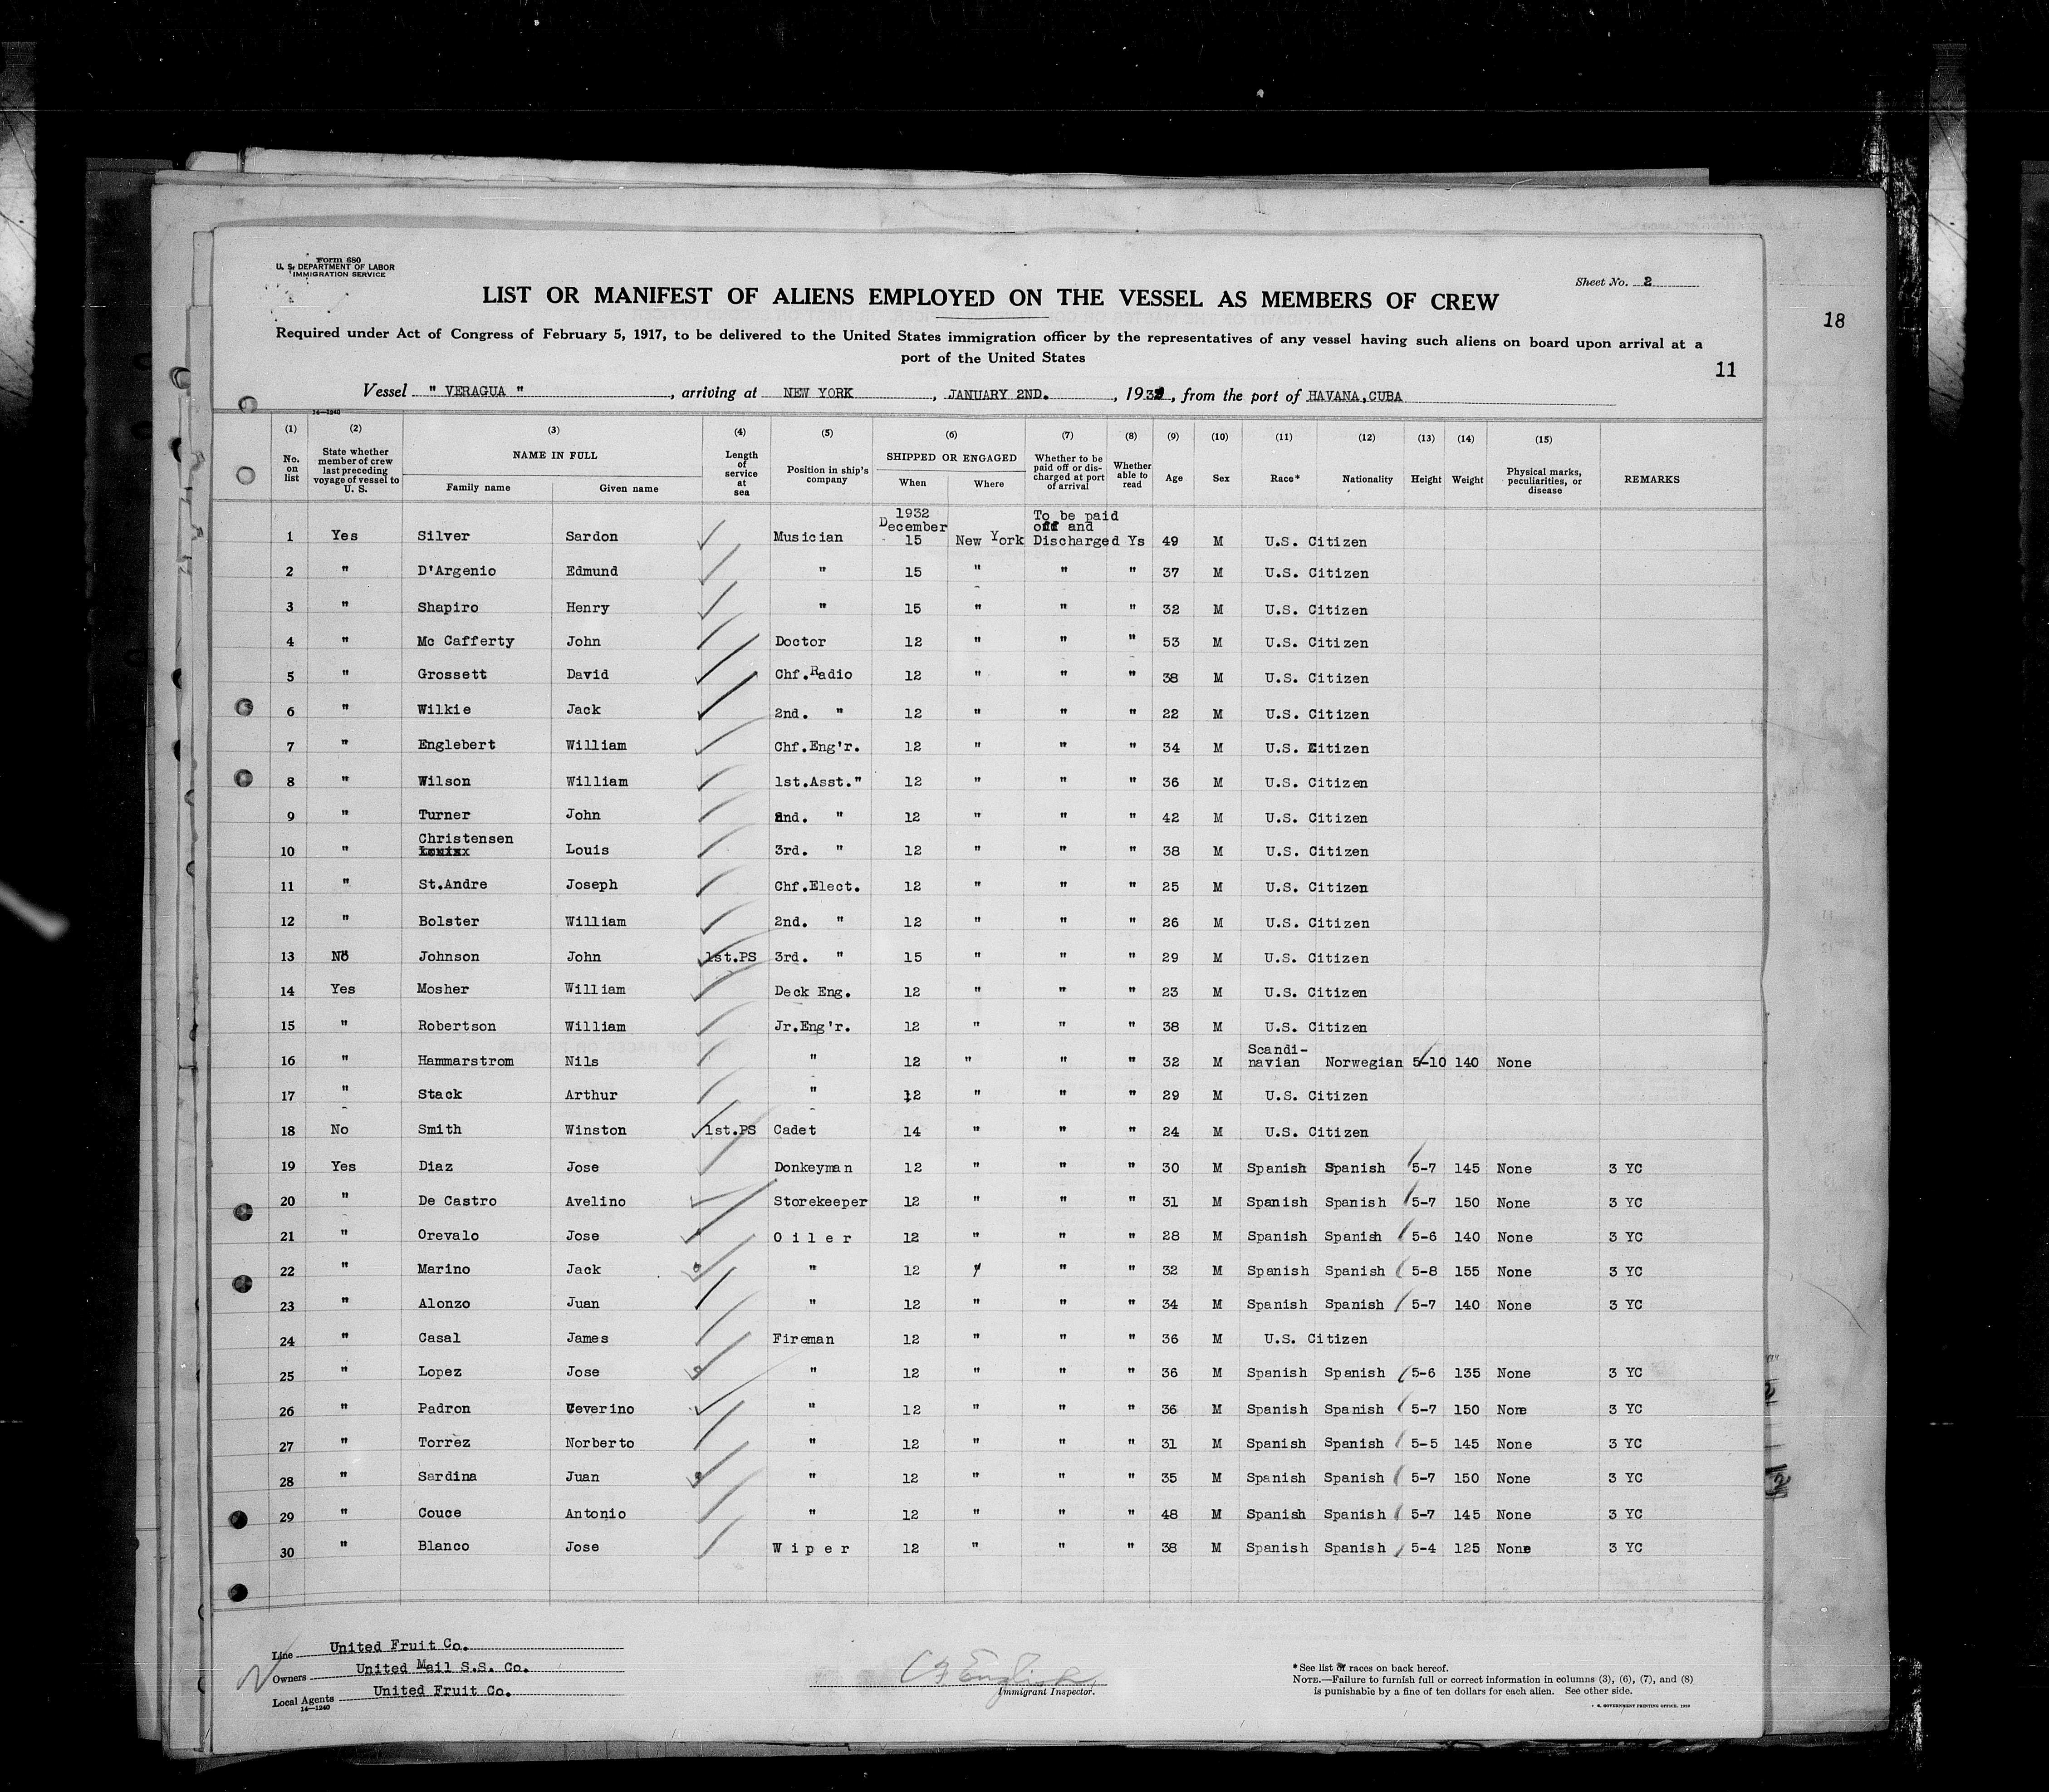 Form 680
U. S. DEPARTMENT OF LABOR
IMMIGRATION SERVICE
Sheet No. 2
LIST OR MANIFEST OF ALIENS EMPLOYED ON THE VESSEL AS MEMBERS OF CREW
18
Required under Act of Congress of February 5, 1917, to be delivered to the United States immigration officer by the representatives of any vessel having such aliens on board upon arrival at a
port of the United States
11
Vessel " VERAGUA " , arriving at NEW YORK , JANUARY 2ND. , 193 , from the port of HAVANA,CUBA
14—1240
(1) (2) (3) (4) (5) (6) (7) (8) (9) (10) (11) (12) (13) (14) (15)
No. on list State whether member of crew last preceding voyage of vessel to U. S. NAME IN FULL Family name Given name Length of service at sea Position in ship's company SHIPPED OR ENGAGED When Where Whether to be paid off or discharged at port of arrival Whether able to read Age Sex Race* Nationality Height Weight Physical marks, peculiarities, or disease REMARKS
1932
December
To be paid
off and
1 Yes Silver Sardon Musician 15 New York Discharged Ys 49 M U.S. Citizen
2 " D'Argenio Edmund " 15 " " " 37 M U.S. Citizen
3 " Shapiro Henry " 15 " " " 32 M U.S. Citizen
4 " Mc Cafferty John Doctor 12 " " " 53 M U.S. Citizen
5 " Grossett David Chf.Radio 12 " " " 38 M U.S. Citizen
6 " Wilkie Jack 2nd. " 12 " " " 22 M U.S. Citizen
7 " Englebert William Chf.Eng'r. 12 " " " 34 M U.S. Citizen
8 " Wilson William 1st.Asst." 12 " " " 36 M U.S. Citizen
9 " Turner John 2nd. " 12 " " " 42 M U.S. Citizen
10 " Christensen Louis 3rd. " 12 " " " 38 M U.S. Citizen
11 " St.Andre Joseph Chf.Elect. 12 " " " 25 M U.S. Citizen
12 " Bolster William 2nd. " 12 " " " 26 M U.S. Citizen
13 No Johnson John 1st.PS 3rd. " 15 " " " 29 M U.S. Citizen
14 Yes Mosher William Deck Eng. 12 " " " 23 M U.S. Citizen
15 " Robertson William Jr.Eng'r. 12 " " " 38 M U.S. Citizen
16 " Hammarstrom Nils " 12 " " " 32 M Scandi-navian Norwegian 5-10 140 None
17 " Stack Arthur " 12 " " " 29 M U.S. Citizen
18 No Smith Winston 1st.PS Cadet 14 " " " 24 M U.S. Citizen
19 Yes Diaz Jose Donkeyman 12 " " " 30 M Spanish Spanish 5-7 145 None 3 YC
20 " De Castro Avelino Storekeeper 12 " " " 31 M Spanish Spanish 5-7 150 None 3 YC
21 " Orevalo Jose Oiler 12 " " " 28 M Spanish Spanish 5-6 140 None 3 YC
22 " Marino Jack " 12 " " " 32 M Spanish Spanish 5-8 155 None 3 YC
23 " Alonzo Juan " 12 " " " 34 M Spanish Spanish 5-7 140 None 3 YC
24 " Casal James Fireman 12 " " " 36 M U.S. Citizen
25 " Lopez Jose " 12 " " " 36 M Spanish Spanish 5-6 135 None 3 YC
26 " Padron Ceverino " 12 " " " 36 M Spanish Spanish 5-7 150 None 3 YC
27 " Torrez Norberto " 12 " " " 31 M Spanish Spanish 5-5 145 None 3 YC
28 " Sardina Juan " 12 " " " 35 M Spanish Spanish 5-7 150 None 3 YC
29 " Couce Antonio " 12 " " " 48 M Spanish Spanish 5-7 145 None 3 YC
30 " Blanco Jose Wiper 12 " " " 38 M Spanish Spanish 5-4 125 None 3 YC
Line United Fruit Co.
Owners United Mail S.S. Co.
Local Agents United Fruit Co.
14—1240
English
Immigrant Inspector.
*See list of races on back hereof.
NOTE.—Failure to furnish full or correct information in columns (3), (6), (7), and (8)
is punishable by a fine of ten dollars for each alien. See other side.
GOVERNMENT PRINTING OFFICE